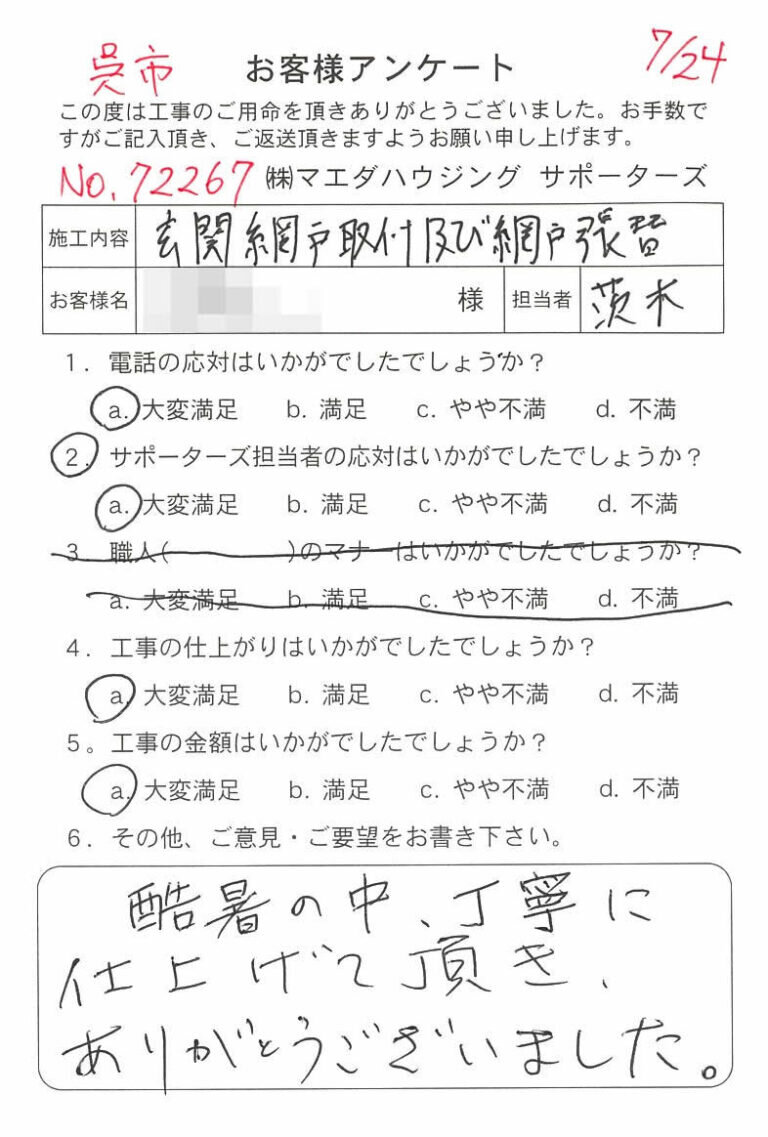 呉市 お客様アンケート 7/24
この度は工事のご用命を頂きありがとうございました。お手数で
すがご記入頂き、ご返送頂きますようお願い申し上げます。
No.72267 ㈱マエダハウジング サポーターズ
施工内容 玄関網戸取付及び網戸張替
お客様名 様 担当者 茨木
1．電話の応対はいかがでしたでしょうか？
a. 大変満足 b. 満足 c. やや不満 d. 不満
2．サポーターズ担当者の応対はいかがでしたでしょうか？
a. 大変満足 b. 満足 c. やや不満 d. 不満
3 職人( )のマナーはいかがでしたでしょうか？
a. 大変満足 b. 満足 c. やや不満 d. 不満
4．工事の仕上がりはいかがでしたでしょうか？
a. 大変満足 b. 満足 c. やや不満 d. 不満
5。工事の金額はいかがでしたでしょうか？
a. 大変満足 b. 満足 c. やや不満 d. 不満
6．その他、ご意見・ご要望をお書き下さい。
酷暑の中、丁寧に
仕上げて頂き、
ありがとうございました。